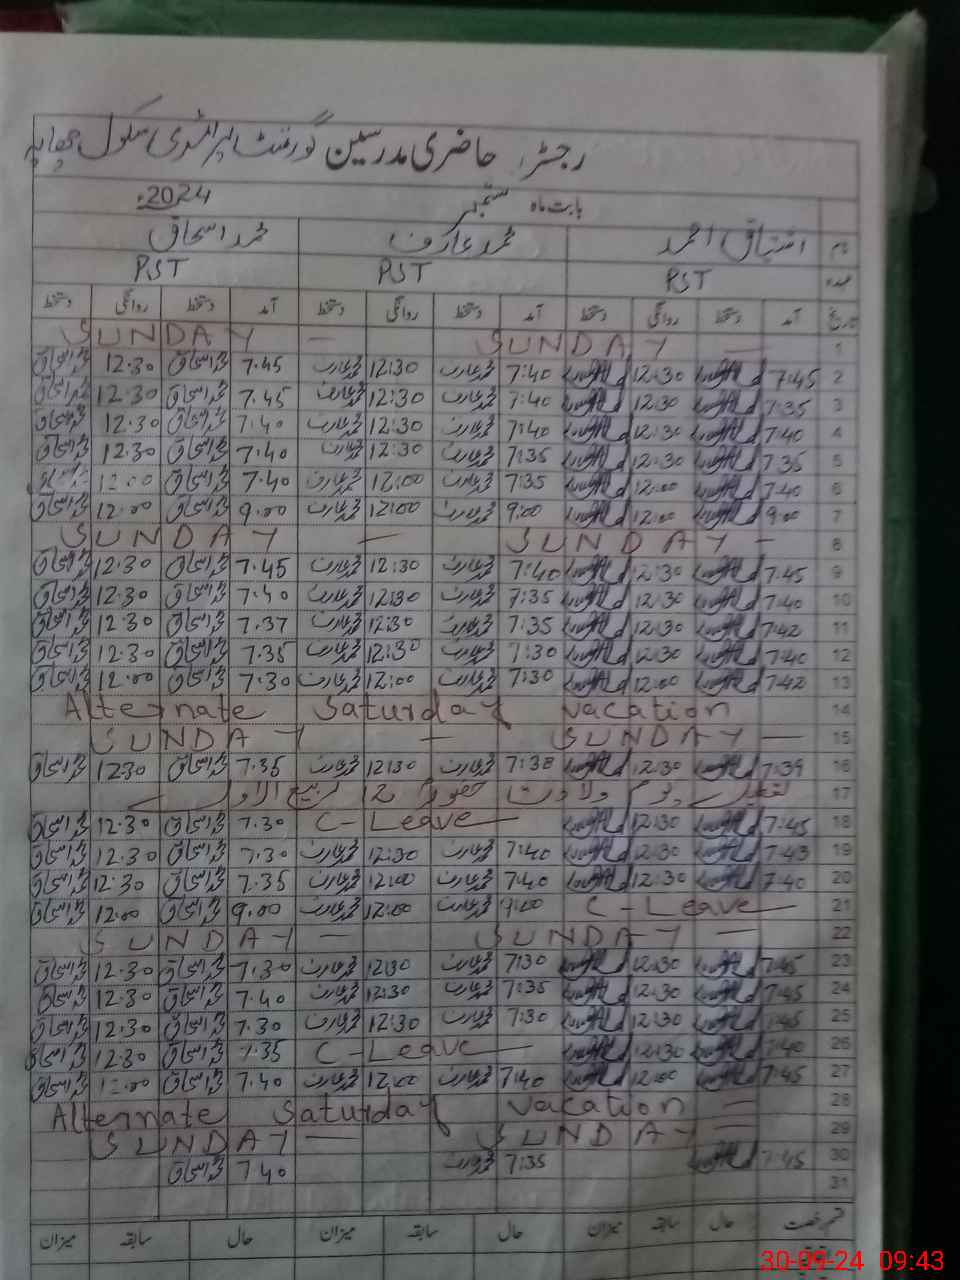 رجسٹر حاضری مدرسین گورنمنٹ پرائمری سکول
بابت ماہ ستمبر 2024ء
نام اشتیاق احمد محمد عارف محمد اسحاق
عہدہ PST PST PST
تاریخ آمد دستخط روانگی دستخط آمد دستخط روانگی دستخط آمد دستخط روانگی دستخط
1 SUNDAY — SUNDAY —
2 7:45 12:30 7:40 محمد عارف 12:30 محمد عارف 7.45 محمد اسحاق 12.30 محمد اسحاق
3 7:35 12:30 7:40 محمد عارف 12:30 محمد عارف 7.45 محمد اسحاق 12.30 محمد اسحاق
4 7:40 12:30 7:40 محمد عارف 12:30 محمد عارف 7.40 محمد اسحاق 12.30 محمد اسحاق
5 7:35 12:30 7:35 محمد عارف 12:30 محمد عارف 7.40 محمد اسحاق 12.30 محمد اسحاق
6 7:40 12:00 7:35 محمد عارف 12:00 محمد عارف 7.40 محمد اسحاق 12:00 محمد اسحاق
7 9:00 12:00 9:00 محمد عارف 12:00 محمد عارف 9.00 محمد اسحاق 12:00 محمد اسحاق
8 SUNDAY — SUNDAY —
9 7:45 12:30 7:40 محمد عارف 12:30 محمد عارف 7.45 محمد اسحاق 12.30 محمد اسحاق
10 7:40 12:30 7:35 محمد عارف 12:30 محمد عارف 7.40 محمد اسحاق 12.30 محمد اسحاق
11 7:42 12:30 7:35 محمد عارف 12:30 محمد عارف 7.37 محمد اسحاق 12.30 محمد اسحاق
12 7:40 12:30 7:30 محمد عارف 12:30 محمد عارف 7.35 محمد اسحاق 12.30 محمد اسحاق
13 7:42 12:00 7:30 محمد عارف 12:00 محمد عارف 7.30 محمد اسحاق 12.00 محمد اسحاق
14 Alternate Saturday vacation
15 SUNDAY — SUNDAY —
16 7:39 12:30 7:38 محمد عارف 12:30 محمد عارف 7.35 محمد اسحاق 12:30 محمد اسحاق
17 تعطیل یوم ولادت حضور 12 ربیع الاول
18 7:45 12:30 C-Leave 7.30 محمد اسحاق 12.30 محمد اسحاق
19 7:43 12:30 7:40 محمد عارف 12:30 محمد عارف 7.30 محمد اسحاق 12.30 محمد اسحاق
20 7:40 12:30 7:40 محمد عارف 12:00 محمد عارف 7.35 محمد اسحاق 12.30 محمد اسحاق
21 C-Leave 9:00 محمد عارف 12:00 محمد عارف 9.00 محمد اسحاق 12:00 محمد اسحاق
22 SUNDAY — SUNDAY —
23 7:45 12:30 7:30 محمد عارف 12:30 محمد عارف 7.30 محمد اسحاق 12.30 محمد اسحاق
24 7:45 12:30 7:35 محمد عارف 12:30 محمد عارف 7.40 محمد اسحاق 12.30 محمد اسحاق
25 7:45 12:30 7:30 محمد عارف 12:30 محمد عارف 7.30 محمد اسحاق 12.30 محمد اسحاق
26 7:40 12:30 C-Leave 7.35 محمد اسحاق 12.30 محمد اسحاق
27 7:45 12:00 7:40 محمد عارف 12:00 محمد عارف 7.40 محمد اسحاق 12:00 محمد اسحاق
28 Alternate Saturday vacation —
29 SUNDAY — SUNDAY —
30 7:45 7:35 محمد عارف 7.40 محمد اسحاق
31
قسم رخصت حال سابقہ میزان حال سابقہ میزان حال سابقہ میزان
30-09-24 09:43